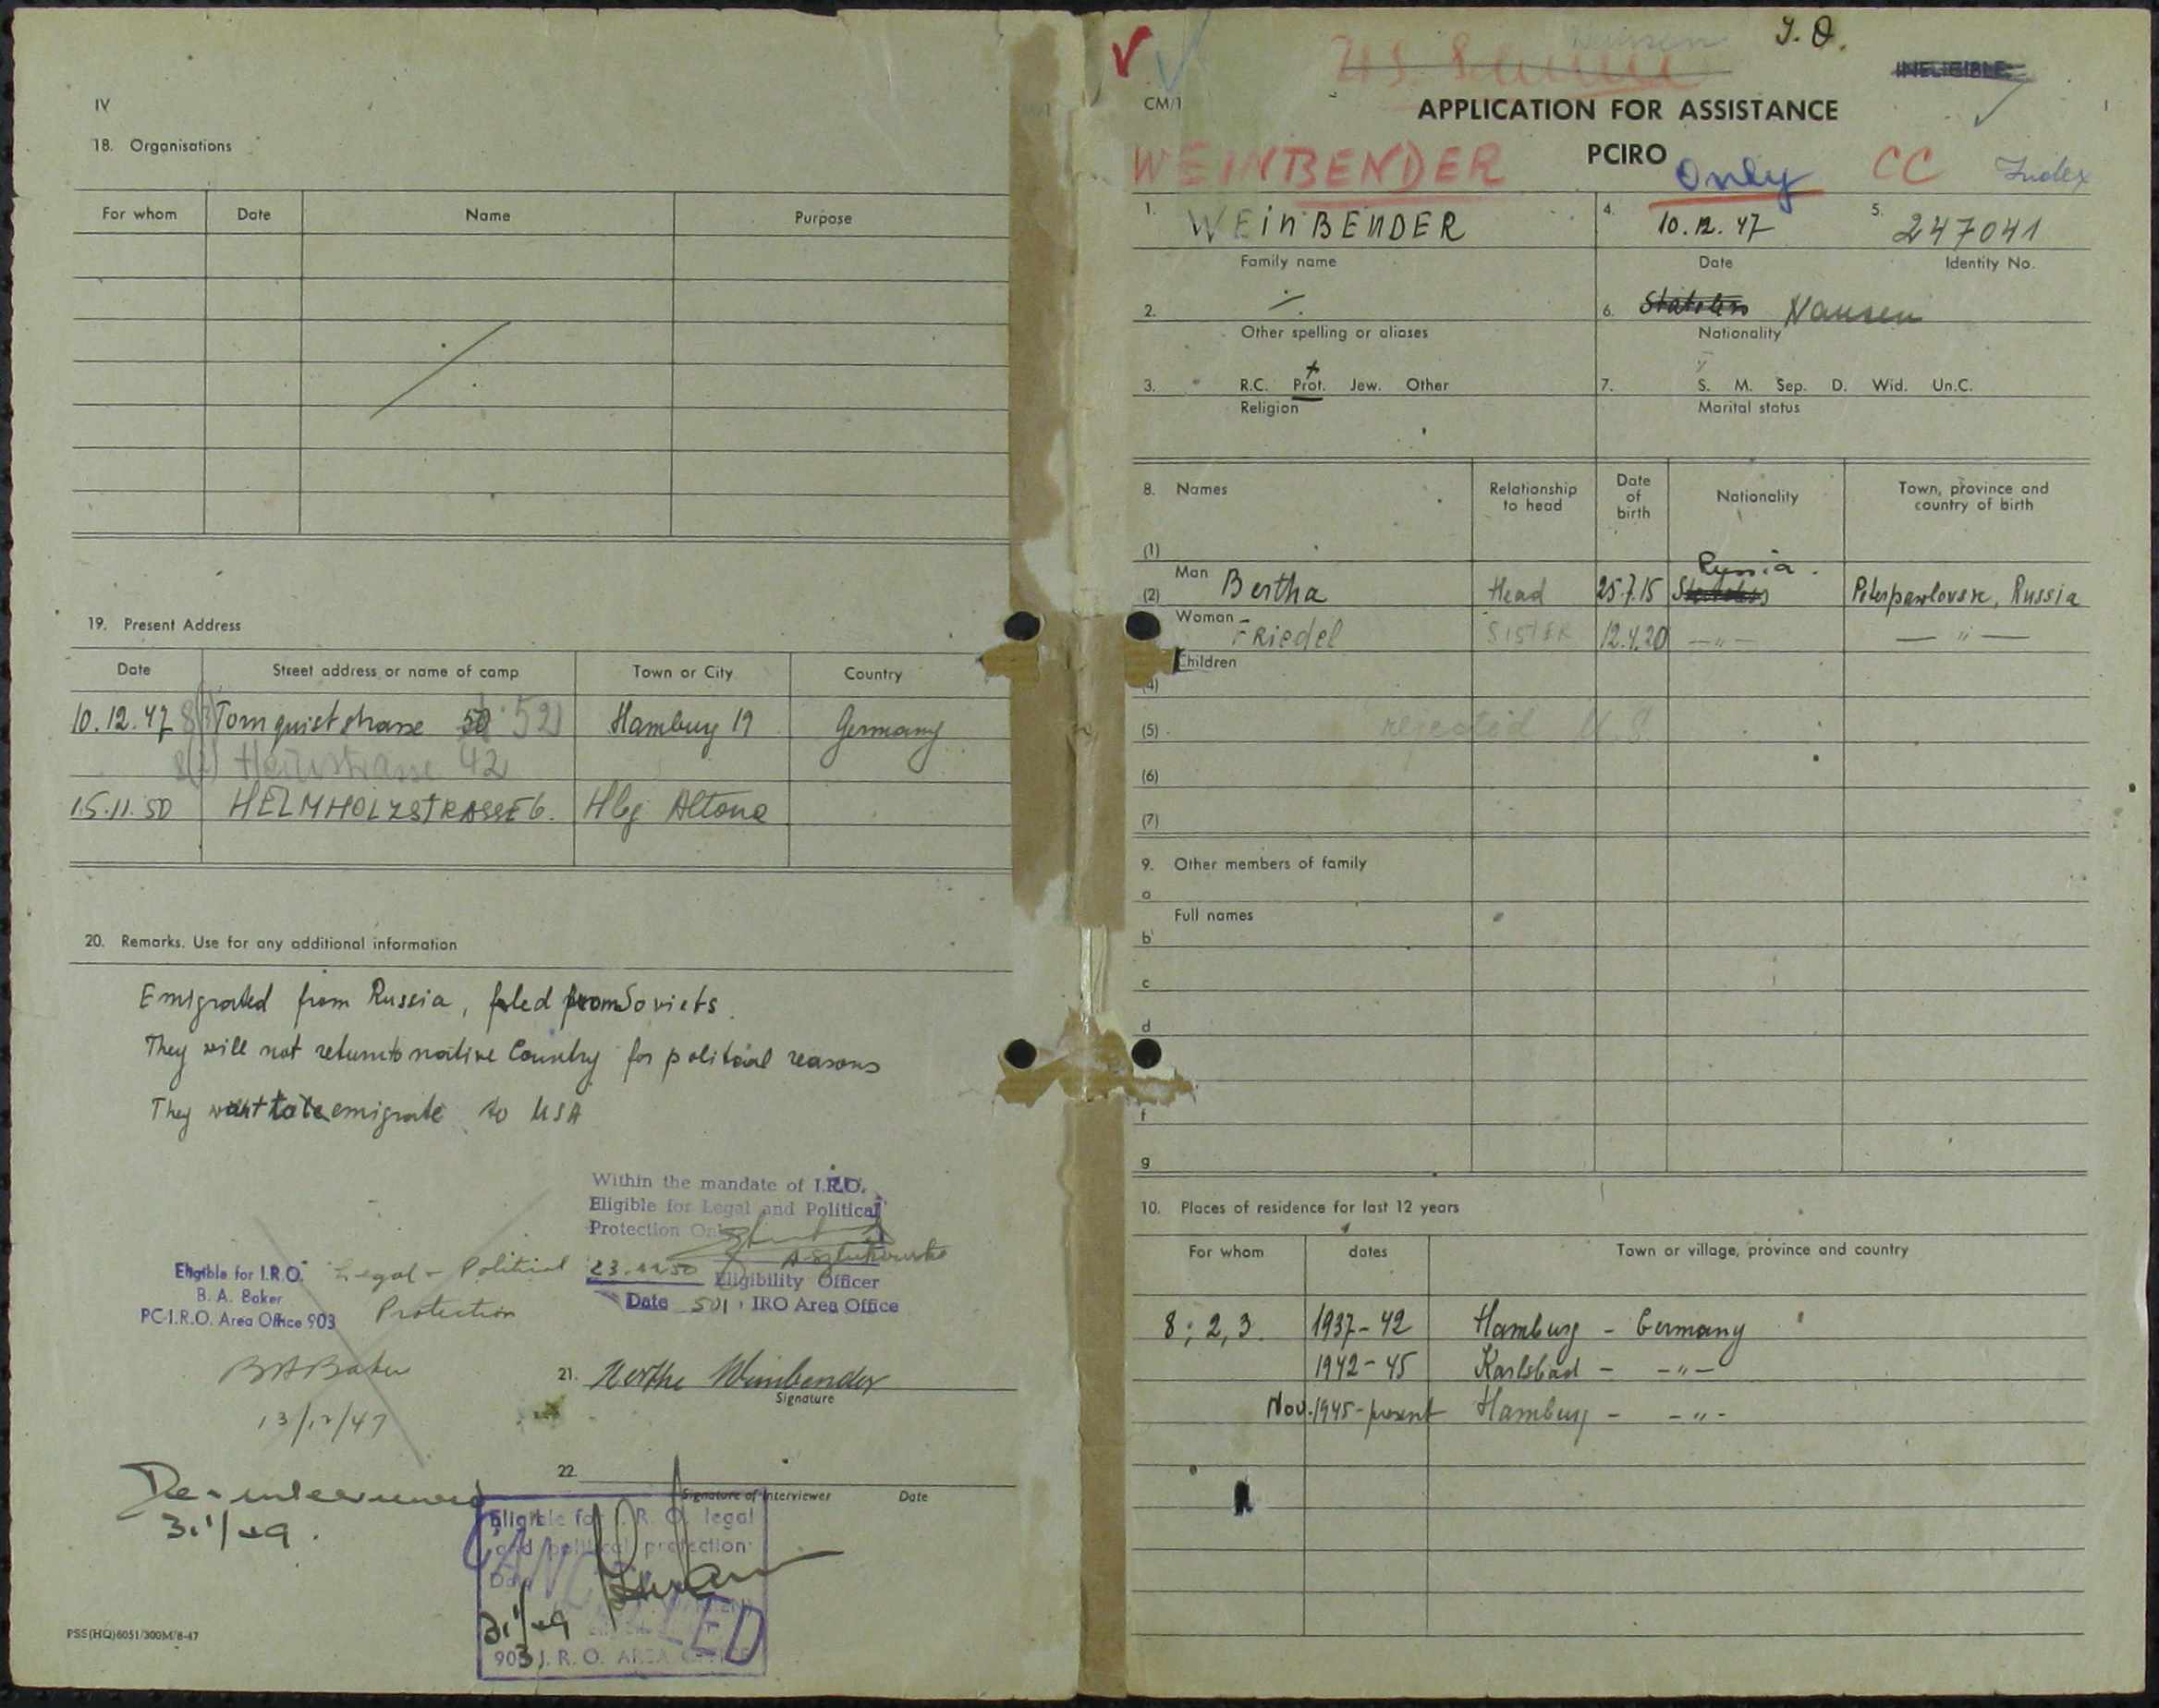 IV
18. Organisations
For whom Date Name Purpose
19. Present Address
Date Street address or name of camp Town or City Country
10.12.47 8(1) Tornquiststrasse 50 52) Hamburg 19 Germany
8(2) 42
15.11.50 HELMHOLZSTRASSE 6. Hbg Altona
20. Remarks. Use for any additional information
Emigrated from Russia, fled from Soviets.
They will not return to native Country for political reasons
They want to emigrate to USA
Within the mandate of I.R.O.
Eligible for Legal and Political
Protection Only
23.11.50 Eligibility Officer
Date 501 IRO Area Office
Eligible for I.R.O. Legal - Political
B. A. Baker Protection
PC-I.R.O. Area Office 903
BABaker
13/12/47
21. Weinbender
Signature
22.
Signature of Interviewer Date
Re-interviewed
31/1/49.
Eligible for I. R. O. legal
and political protection
Date
CANCELLED
31/1/49
903 I. R. O. AREA OFFICE
PSS(HQ)6051/300M/8-47
J. O.
INELIGIBLE
CM/1
APPLICATION FOR ASSISTANCE
PCIRO only
WEINBENDER CC Index
1. WEINBENDER 4. 10.12.47 5. 247041
Family name Date Identity No.
2. 6. Stateless Nansen
Other spelling or aliases Nationality
3. R.C. Prot. Jew. Other 7. S. M. Sep. D. Wid. Un.C.
Religion Marital status
8. Names Relationship to head Date of birth Nationality Town, province and country of birth
(1)
Man
Russia.
(2) Bertha Head 25.7.15 Stateless Peterpawlowsk, Russia
Woman
FRiedel SISTER 12.4.20 —"— —"—
Children
(4)
(5) rejected U.S.
(6)
(7)
9. Other members of family
a
Full names
b
c
d
f
g
10. Places of residence for last 12 years
For whom dates Town or village, province and country
8; 2, 3. 1937-42 Hamburg - Germany
1942-45 Karlsbad - -"-
Nov. 1945-present Hamburg - -"-